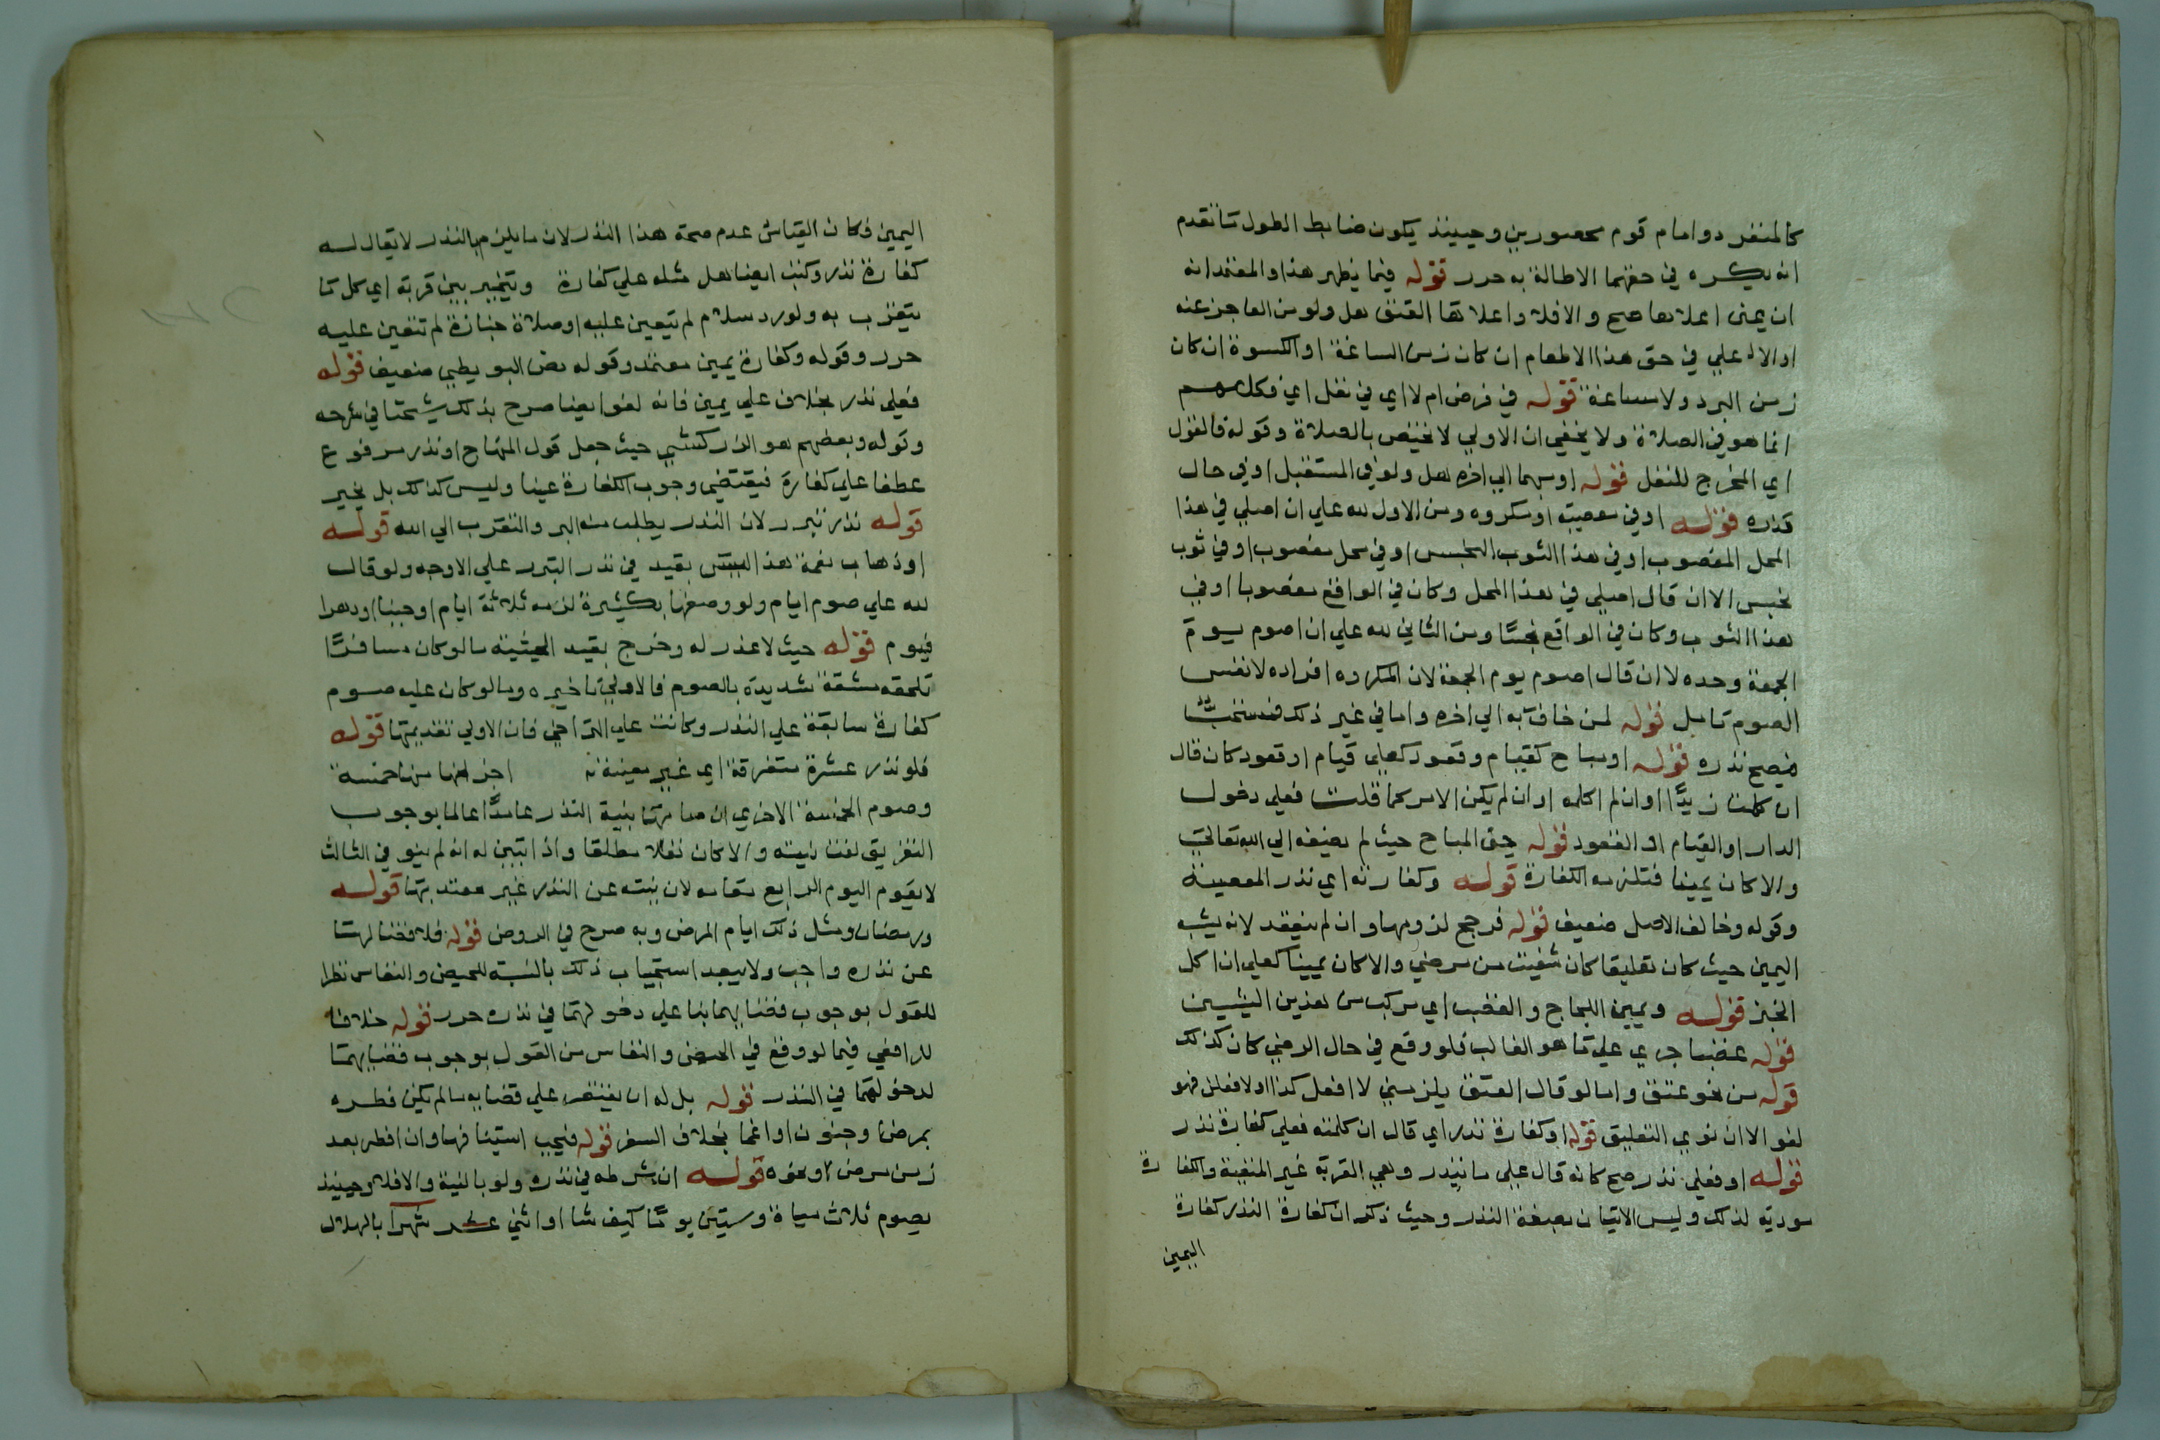 كالمنفرد وامام قوم محصورين وحينئذ يكون ضابط الطول ما تقدم
انه يكره في حقهما الاطالة به حرر قوله فيما يظهر هذا والمعتمد انه
ان يمنى اعلاها صح والافلا واعلاها العتق هل ولو من العاجز عنه
اولا علي في حق هذا الاطعام ان كان زمن الساغة او الكسوة ان كان
زمن البرد ولا مساغة قوله في فرض ام لا اي في نفل اي فكلامهم
انما هو في الصلاة ولا يخفي ان الاولي لا تختص بالصلاة وقوله فالقول
اي المخرج للنفل قوله او مبهما الي اخره هل ولو في المستقبل او في حال
قدره قوله او في معصية او مكروه ومن الاول لله علي ان اصلي في هذا
المحل المغصوب او في هذا الثوب النجس او في محل مغصوب او في ثوب
نجس الا ان قال اصلي في هذا المحل وكان في الواقع مغصوبا او في
هذا الثوب وكان في الواقع نجسًا ومن الثاني لله علي ان اصوم يوم
الجمعة وحده لا ان قال اصوم يوم الجمعة لان المكروه افراده لا نفس
الصوم تامل قوله لمن خاف به الي اخره واما في غير ذلك فمستحبٌّ
فيصح نذره قوله او مباح كقيام وقعود كعلي قيام او قعود كان قال
ان كلمت زيدًا او ان لم اكلمه او ان لم يكن الامر كما قلت فعلي دخول
الدار او القيام او القعود قوله حتي المباح حيث لم يضيفه الي الله تعالي
والا كان يمينا فتلزمه الكفارة قوله وكفارته اي نذر المعصية
وقوله وخالف الاصل ضعيف قوله فرجح لزومها وان لم ينعقد لانه يشبه
اليمين حيث كان تعليقا كان شفيت من مرضي والا كان يمينا كعلي ان اكل
الخبز قوله ويمين اللجاج والغضب اي مركب من هذين الشيئين
قوله غضبا جري علي ما هو الغالب فلو وقع في حال الرضي كان كذلك
قوله من نحو عتق واما لو قال العتق يلزمني لا افعل كذا او لافعلن فهو
لغو الا ان نوي التعليق قوله او كفارة نذر اي قال ان كلمته فعلي كفارة نذر
قوله او فعلي نذر صح كانه قال علي ما ينذر وهي القربة غير المتعينة والكفارة
موديه لذلك وليس الاتيان بصيغة النذر وحيث ذكر ان كفارة النذر كفارة
اليمين
اليمين فكان القياس عدم صحة هذا النذر لان ما يلزم بالنذر لا يقال له
كفارة نذر وكتب ايضا هل مثله علي كفارة ويتخير بين قربة اي كل ما
يتقرب به ولو رد سلام لم يتعين عليه او صلاة جنازة لم تتعين عليه
حرر وقوله وكفارة يمين معتمد وقوله نص البويطي ضعيف قوله
فعلي نذر بخلاف علي يمين فانه لغو ايضا صرح بذلك شيخنا في شرحه
وقوله وبعضهم هو الزركشي حيث جعل قول المنهاج او نذر مرفوع
عطفا علي كفارة فيقتضي وجوب الكفارة عينا وليس كذلك بل يخير
قوله نذر تبرر لان النذر يطلب منه البر والتقرب الي الله قوله
او ذهاب نقمة هذا ليس بقيد في نذر التبرر علي الاوجه ولو قال
لله علي صوم ايام ولو وصفها بكثيرة لزمه ثلاثة ايام او حينا او دهرا
فيوم قوله حيث لا عذر له وخرج بقيد الحيثية ما لو كان مسافرًا
تلحقه مشقة شديدة بالصوم فالاولي تاخيره وما لو كان عليه صوم
كفارة سابقة علي النذر وكانت علي التراخي فان الاولي تقديمها قوله
فلو نذر عشرة متفرقة اي غير معينة اجزاه منها خمسة
وصوم الخمسة الاخري ان صامها بنية النذر عامدًا عالما بوجوب
التفريق لغت نيته والا كان نفلا مطلقا واذا تبين له انه لم ينو في الثالث
لا يقوم اليوم الرابع مقامه لان نيته عن النذر غير معتد بها قوله
ورمضان ومثل ذلك ايام المرض وبه صرح في الروض قوله فلا قضا لهما
عن نذره واجب ولا يبعد استحباب ذلك بالنسبة للحيض والنفاس نظرا
للقول بوجوب قضائهما بنا علي دخولهما في نذره حرر قوله خلافا
للرافعي فيما لو وقع في الحيض والنفاس من القول بوجوب قضائهما
لدخولهما في النذر قوله بل له ان يقتصر علي قضا به ما لم يكن فطره
بمرض وجنون او اغما بخلاف السفر قوله فيجب استينافها وان افطر بعد
زمن مرض او نحوه قوله ان شرطه في نذره ولو بالنية والافلا وحينئذ
يصوم ثلاث مياة وستين يومًا كيف شا او اثني عشر شهرا بالهلال